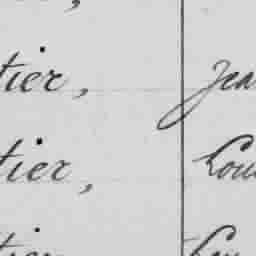 tier, Jea
tier, Lou
tier